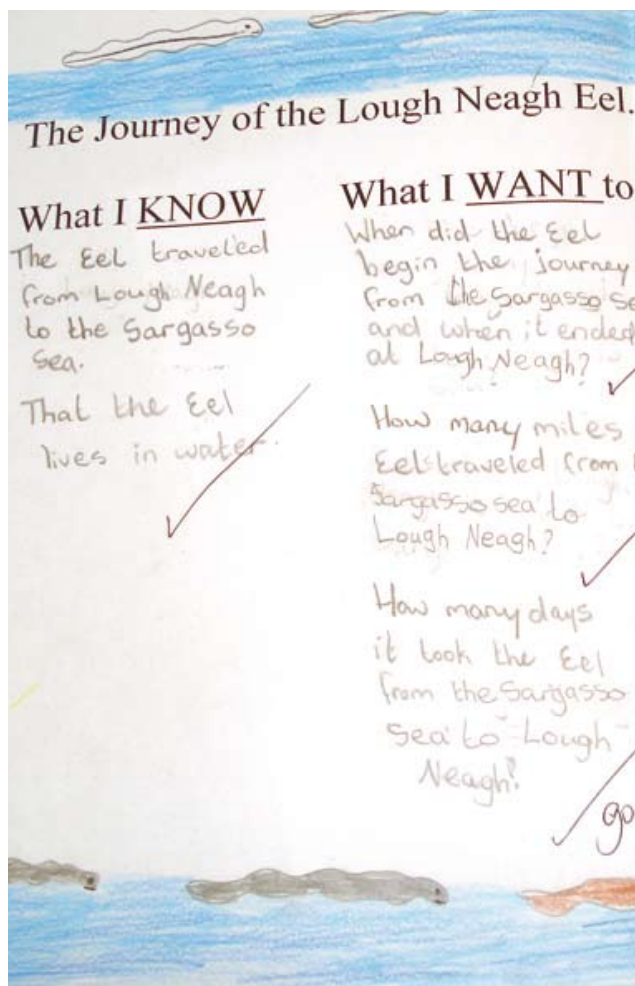 The Journey of the Lough Neagh Eel.
What I KNOW
The Eel traveled
from Lough Neagh
to the Sargasso
Sea.
That the Eel
lives in water.
What I WANT to
When did the Eel
begin the journey
from the Sargasso Se
and when it ended
at Lough Neagh?
How many miles
Eel traveled from
Sargasso sea to
Lough Neagh?
How many days
it took the Eel
from the Sargasso
Sea to Lough
Neagh?
go